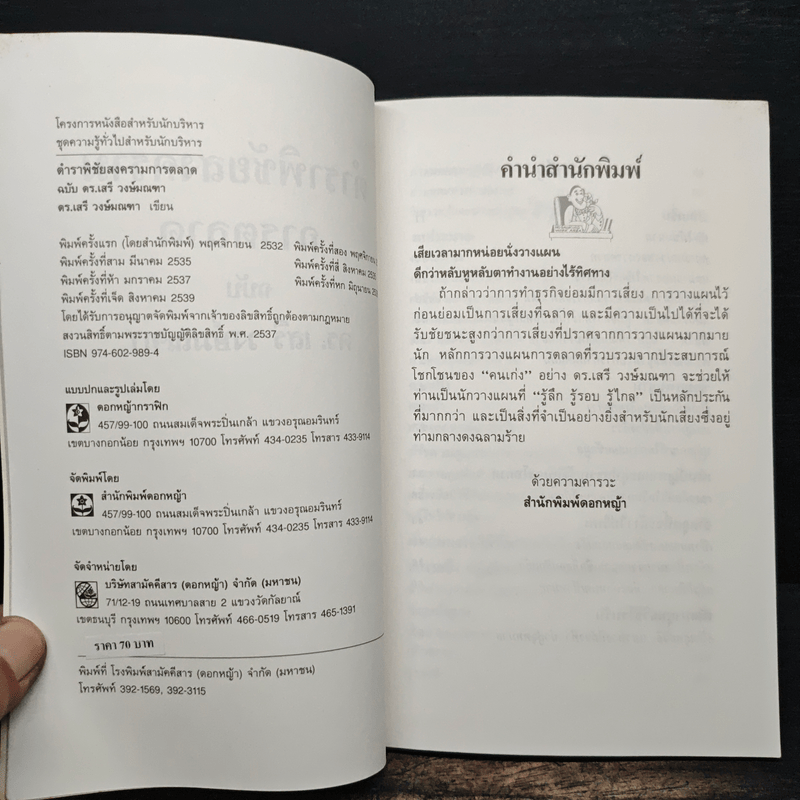 โครงการหนังสือสำหรับนักบริหาร
ชุดความรู้ทั่วไปสำหรับนักบริหาร
ตำราพิชัยสงครามการตลาด
ฉบับ ดร.เสรี วงษ์มณฑา
ดร.เสรี วงษ์มณฑา เขียน
พิมพ์ครั้งแรก (โดยสำนักพิมพ์) พฤศจิกายน 2532 พิมพ์ครั้งที่สอง พฤศจิกายน
พิมพ์ครั้งที่สาม มีนาคม 2535 พิมพ์ครั้งที่สี่ สิงหาคม
พิมพ์ครั้งที่ห้า มกราคม 2537 พิมพ์ครั้งที่หก มิถุนายน
พิมพ์ครั้งที่เจ็ด สิงหาคม 2539
โดยได้รับการอนุญาตจัดพิมพ์จากเจ้าของลิขสิทธิ์ถูกต้องตามกฎหมาย
สงวนสิทธิ์ตามพระราชบัญญัติลิขสิทธิ์ พ.ศ. 2537
ISBN 974-602-989-4
แบบปกและรูปเล่มโดย
ดอกหญ้ากราฟิก
457/99-100 ถนนสมเด็จพระปิ่นเกล้า แขวงอรุณอมรินทร์
เขตบางกอกน้อย กรุงเทพฯ 10700 โทรศัพท์ 434-0235 โทรสาร 433-9114
จัดพิมพ์โดย
สำนักพิมพ์ดอกหญ้า
457/99-100 ถนนสมเด็จพระปิ่นเกล้า แขวงอรุณอมรินทร์
เขตบางกอกน้อย กรุงเทพฯ 10700 โทรศัพท์ 434-0235 โทรสาร 433-9114
จัดจำหน่ายโดย
บริษัทสามัคคีสาร (ดอกหญ้า) จำกัด (มหาชน)
71/12-19 ถนนเทศบาลสาย 2 แขวงวัดกัลยาณ์
เขตธนบุรี กรุงเทพฯ 10600 โทรศัพท์ 466-0519 โทรสาร 465-1391
ราคา 70 บาท
พิมพ์ที่ โรงพิมพ์สามัคคีสาร (ดอกหญ้า) จำกัด (มหาชน)
โทรศัพท์ 392-1569, 392-3115
คำนำสำนักพิมพ์
เสียเวลามากหน่อยนั่งวางแผน
ดีกว่าหลับหูหลับตาทำงานอย่างไร้ทิศทาง
ถ้ากล่าวว่าการทำธุรกิจย่อมมีการเสี่ยง การวางแผนไว้
ก่อนย่อมเป็นการเสี่ยงที่ฉลาด และมีความเป็นไปได้ที่จะได้
รับชัยชนะสูงกว่าการเสี่ยงที่ปราศจากการวางแผนมากมาย
นัก หลักการวางแผนการตลาดที่รวบรวมจากประสบการณ์
โชกโชนของ "คนเก่ง" อย่าง ดร.เสรี วงษ์มณฑา จะช่วยให้
ท่านเป็นนักวางแผนที่ "รู้ลึก รู้รอบ รู้ไกล" เป็นหลักประกัน
ที่มากกว่า และเป็นสิ่งที่จำเป็นอย่างยิ่งสำหรับนักเสี่ยงซึ่งอยู่
ท่ามกลางดงฉลามร้าย
ด้วยความคารวะ
สำนักพิมพ์ดอกหญ้า